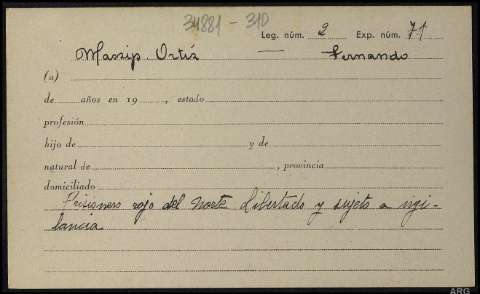 31881 - 310
Leg. núm. 2 Exp. núm. 71
Massip Ortiz Fernando
(a)
de años en 19 , estado
profesión
hijo de y de
natural de , provincia
domiciliado
Prisionero rojo del Norte Libertado y sujeto a vigi-
lancia
ARG